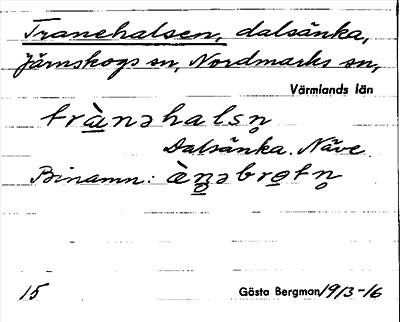 Tranehalsen, dalsänka,
Järnskogs sn, Nordmarks sn,
Värmlands län
trànəhalsn̥
Dalsänka. Näve.
Binamn: àn̥əbrotn̥
15 Gösta Bergman 1913-16